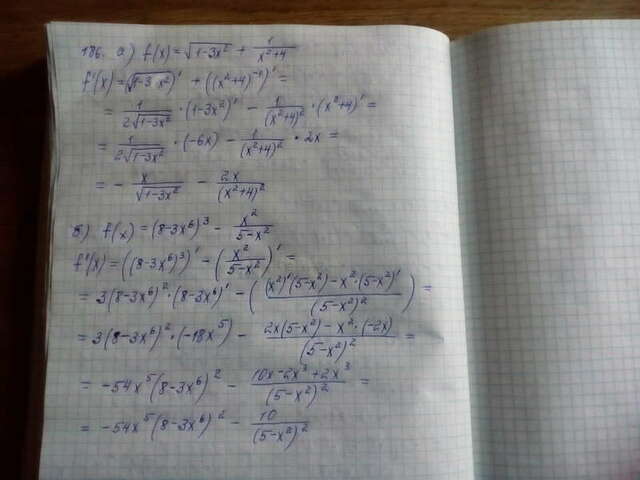 186. а) f(x) = √(1-3x²) + 1/(x²+4)
f'(x) = (√(1-3x²))' + ((x²+4)⁻¹)' =
= 1/(2√(1-3x²)) · (1-3x²)' - 1/(x²+4)² · (x²+4)' =
= 1/(2√(1-3x²)) · (-6x) - 1/(x²+4)² · 2x =
= - x/√(1-3x²) - 2x/(x²+4)²
б) f(x) = (8-3x⁶)³ - x²/(5-x²)
f'(x) = ((8-3x⁶)³)' - (x²/(5-x²))' =
= 3(8-3x⁶)² · (8-3x⁶)' - ((x²)'(5-x²) - x² · (5-x²)'/(5-x²)²) =
= 3(8-3x⁶)² · (-18x⁵) - (2x(5-x²) - x² · (-2x))/(5-x²)² =
= -54x⁵(8-3x⁶)² - (10x-2x³+2x³)/(5-x²)² =
= -54x⁵(8-3x⁶)² - 10/(5-x²)²